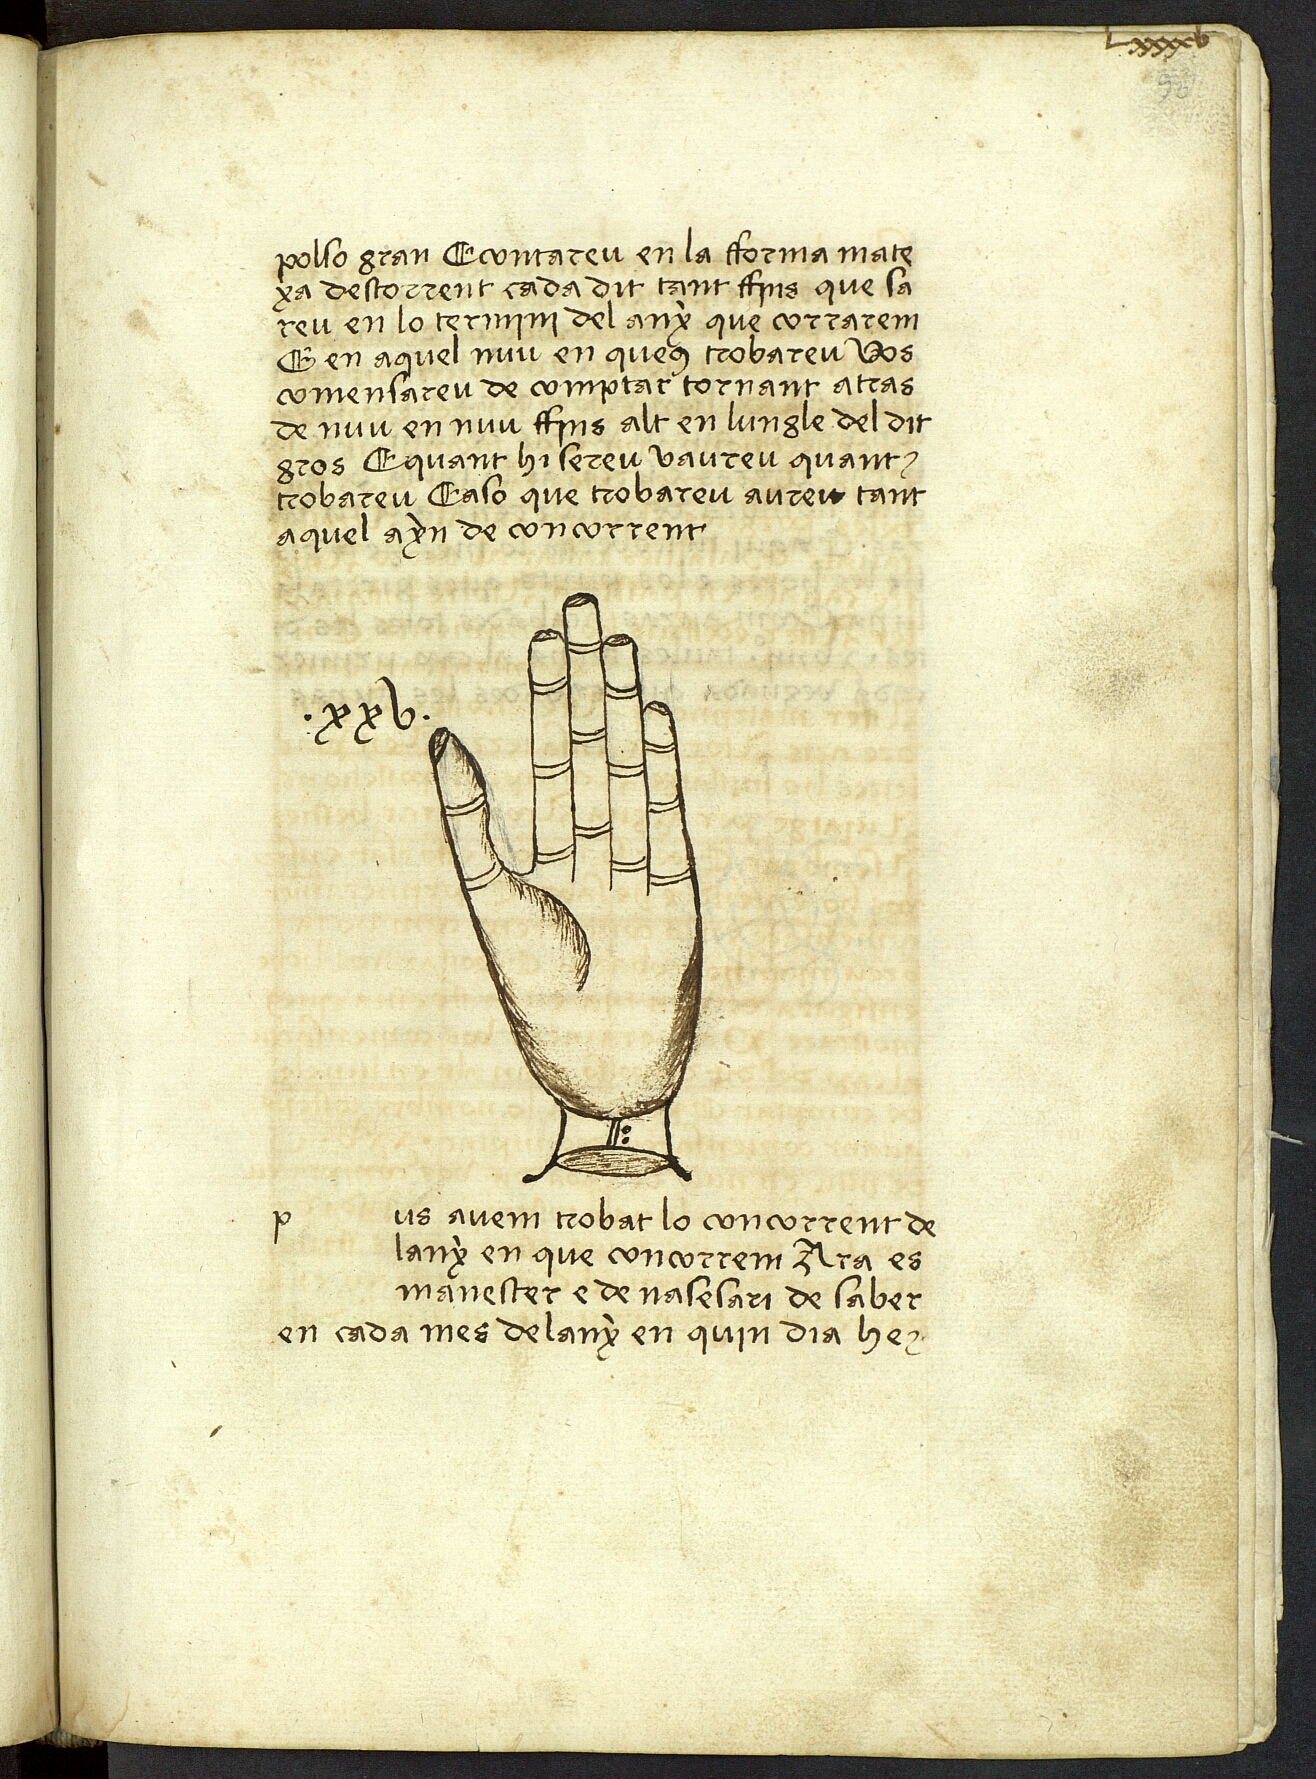 Lxxxxv
98
polso gran E contareu en la fforma mate
xa destorrent cada dit tant ffins que sa
reu en lo termini del anẏ que correrem
E en aquel nuu en queus trobareu Vos
comensareu de comptar tornant atras
de nuu en nuu ffins alt en lungle del dit
gros E quant hi sereu vaureu quant
trobareu E aso que trobareu aureu tant
aquel aẏn de concorrent
.xxv.
p us avem trobat lo concorrent de
lanẏ en que concorrem Ara es
manester e de nasesari de saber
en cada mes de lanẏ en quin dia he